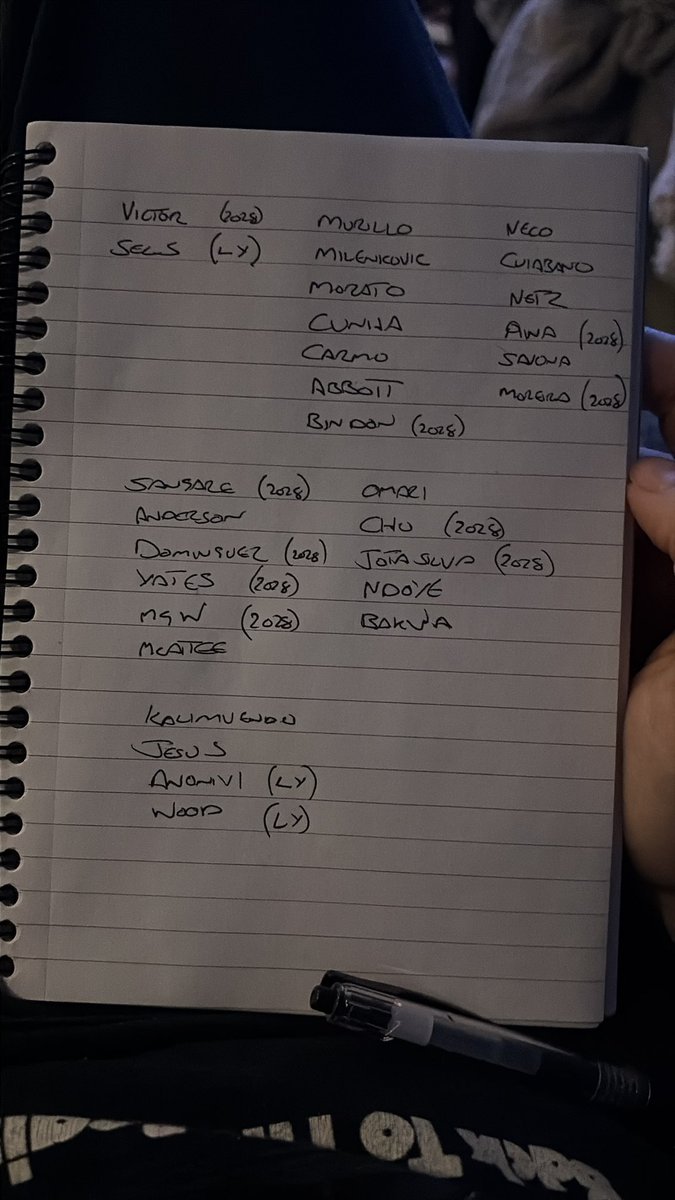 VICTOR (2028) MURILLO NECO
SELS (LY) MILENKOVIC CUIABANO
MORATO NETZ
CUNHA AINA (2028)
CARMO SAVONA
ABBOTT MOREIRA (2028)
BINDON (2028)
SANGARE (2028) OMARI
ANDERSON CHO (2028)
DOMINGUEZ (2028) JOTA SILVA (2028)
YATES (2028) NDOYE
MGW (2028) BAKWA
MCATEE
KALIMUENDO
JESUS
AWONIYI (LY)
WOOD (LY)
BACK TO